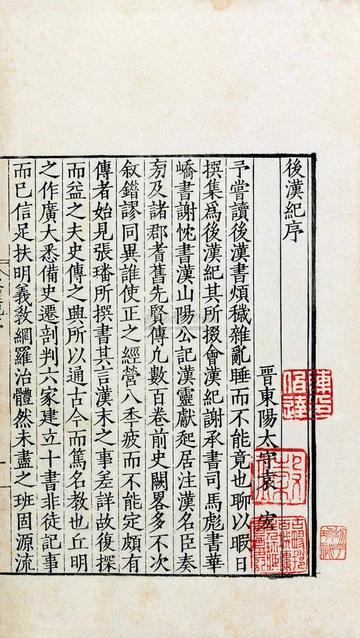 後漢紀序
晉東陽太守袁 宏
予嘗讀後漢書煩穢雜亂睡而不能竟也聊以暇日
撰集爲後漢紀其所掇會漢紀謝承書司馬彪書華
嶠書謝忱書漢山陽公記漢靈獻起居注漢名臣奏
旁及諸郡耆舊先賢傳凡數百卷前史闕畧多不次
叙錯謬同異誰使正之經營八年疲而不能定頗有
傳者始見張璠所撰書其言漢末之事差詳故復探
而益之夫史傳之興所以通古今而篤名教也丘明
之作廣大悉備史遷剖判六家建立十書非徒記事
而已信足扶明義教網羅治體然未盡之班固源流